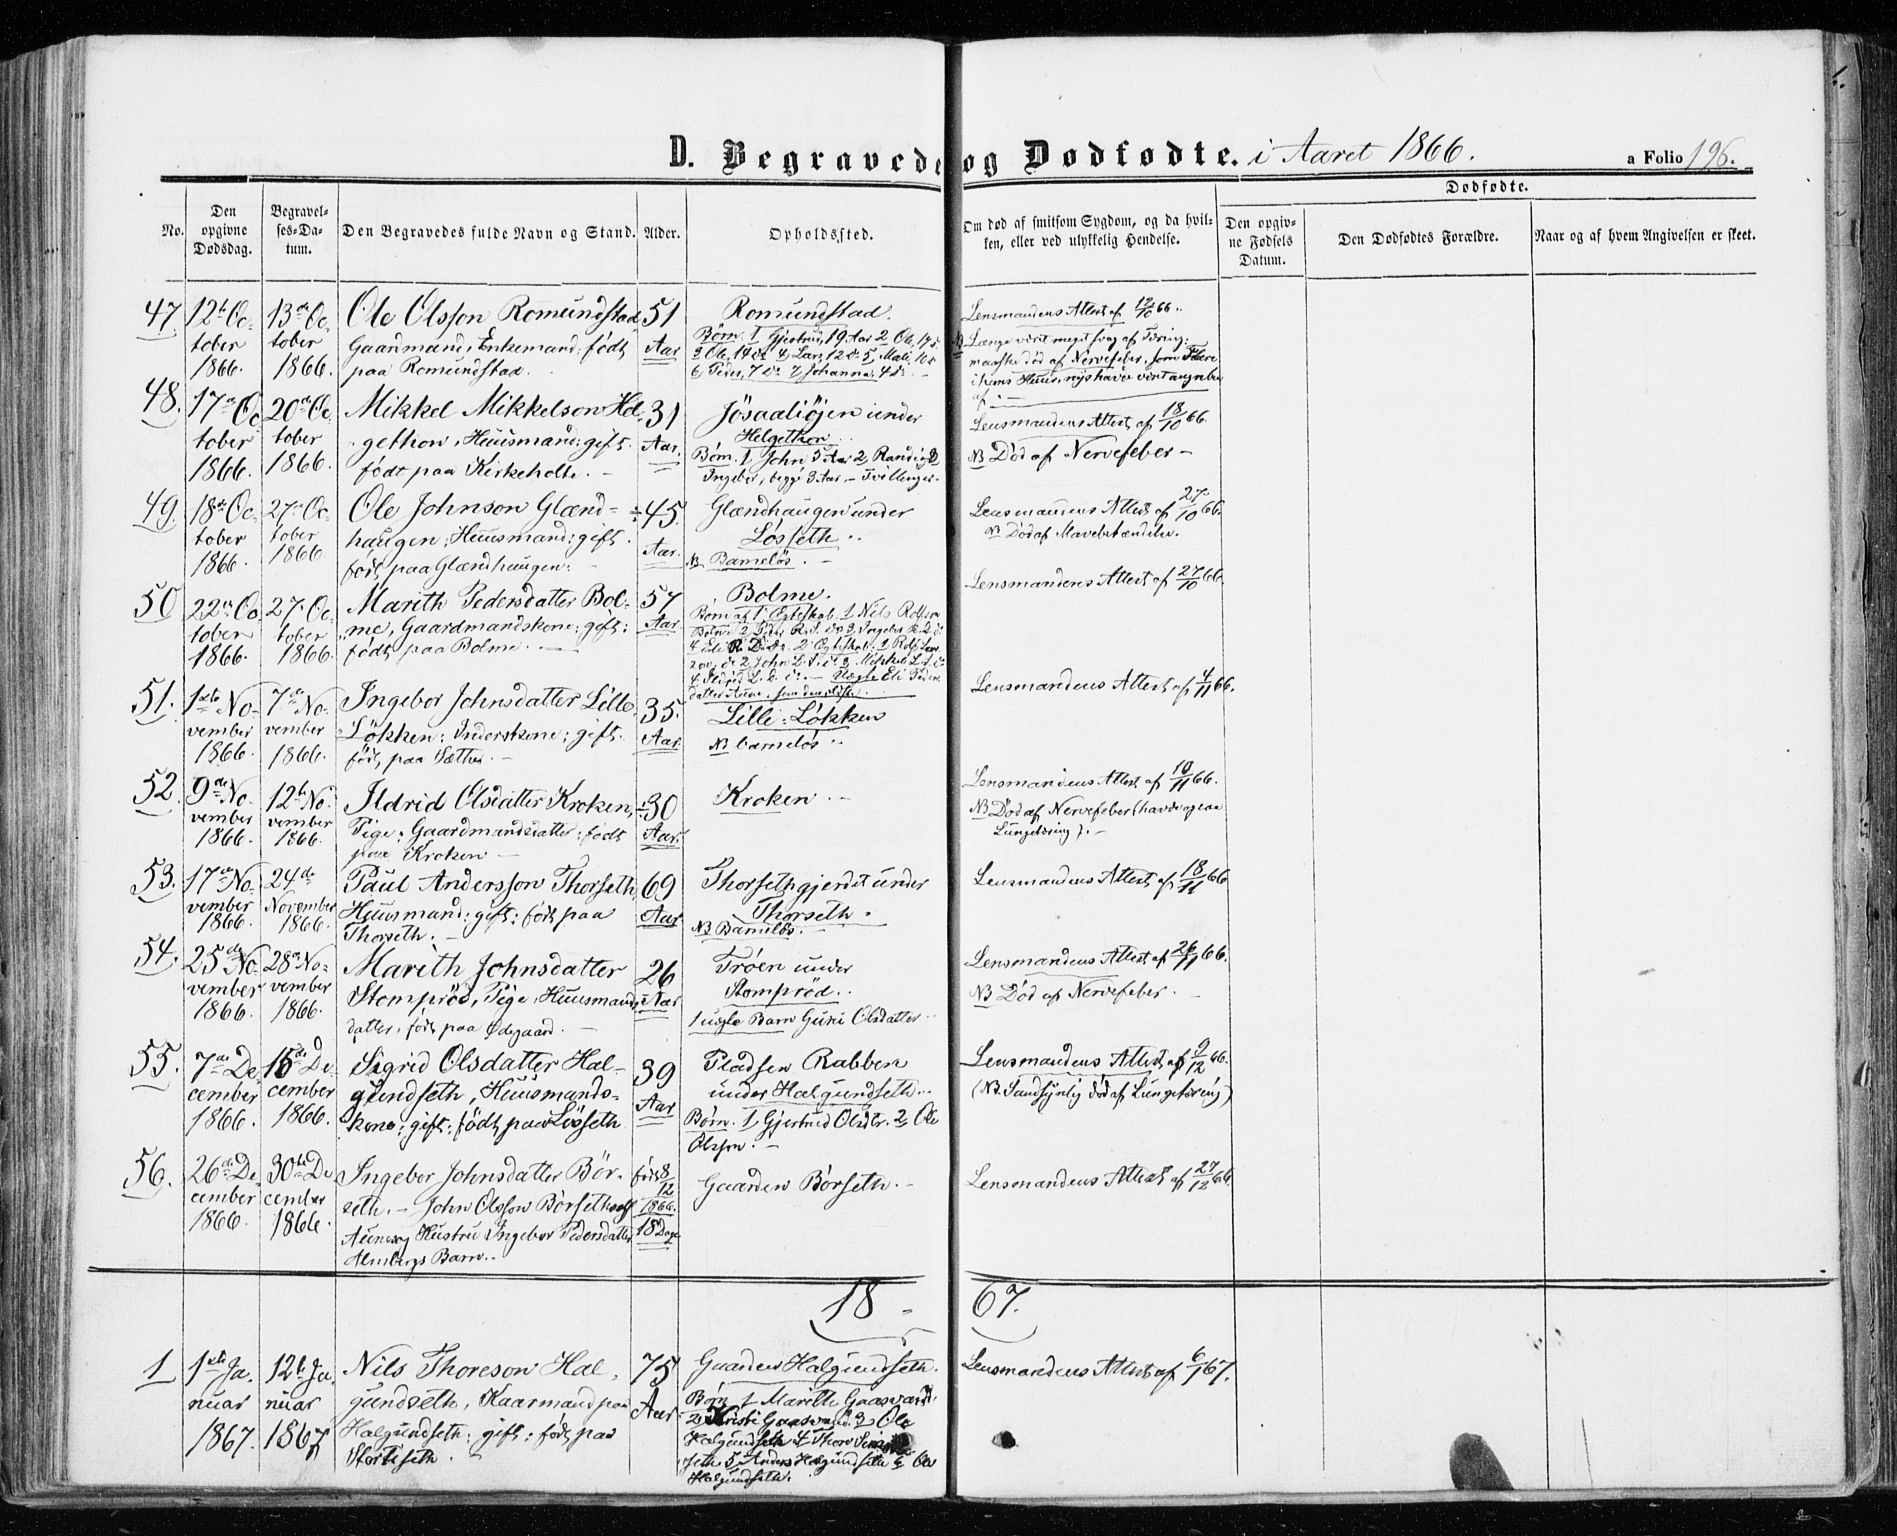 D. Begravede og Dødfødte. i Aaret 1866.
a Folio 196.
Dødfødte.
No.
Den opgivne Dødsdag.
Begravelses-Datum.
Den Begravedes fulde Navn og Stand.
Alder.
Opholdssted.
Om død af smitsom Sygdom, og da hvilken, eller ved ulykkelig Hendelse.
Den opgivne Fødsels Datum.
Den Dødfødtes Forældre.
Naar og af hvem Angivelsen er skeet.
47.
12te October 1866.
13de October 1866.
Ole Olsson Romundstad
Gaardmand, Enkemand: født
paa Romundstad.
51 Aar
Romundstad.
Børn. 1 Gjertrud, 19 Aar 2 Ole, 17 d:
3 Ole, 14 d: 4 Lars, 12 d: 5, Mali, 10 d:
6 Peder, 7 d: 7 Johanna, 4 d:
Lensmandens Attest af 12/10 66.
NB Længe været meget svag af Tæring:
maaskee død af Nervefeber, som Flere
i hans Huus, nys havde været angrebne
af:
48.
17de October 1866.
20de October 1866.
Mikkel Mikkelson Hel-
gethon, Huusmand: gift.
født paa Kirkeholte.
31 Aar.
Jösaaliøjen under
Helgethon.
Børn. 1 John 5 Aar 2, Randi og 3
Ingebor, begge 3 Aar, - Tvillinger.
Lensmandens Attest af 18/10 66.
NB Død af Nervefeber -
49.
18de October 1866.
27de October 1866.
Ole Johnson Glænd-
haugen, Huusmand: gift.
født paa Glændhaugen.
÷45. Aar.
Glændhaugen under
Løsseth..
NB Barneløs. -
Lensmandens Attest af 27/10 66.
NB Død af Mavebetændelse.
50
22de October 1866.
27de October 1866.
Marith Pedersdatter Bol-
me, Gaardmandskone: gift:
født paa Bolme.
57 Aar
Bolme.
Børn af 1ste Egteskab. 1 Nils Rolfson
Bolme 2 Peder R. S. do 3. Ingebor R. D. d:
4 Eli R. D. do. 2det Egteskab: 1 Rolf Lars-
son, d: 2 John L. S. d: 3. Mikkel L. S. d:
4 Ildrid L. D. d: - Uægte Eli Peders
datter Aune, som den ældste.
Lensmandens Attest af 27/10 66.
51.
1ste November 1866.
7de November 1866.
Ingebor Johnsdatter Lille
Løkken: Inderstkone: gift.
født paa Sæther.
35. Aar.
Lille-Løkken
NB barneløs..
Lensmandens Attest af 4/11 66.
52.
9de November 1866.
12te November 1866.
Ildrid Olsdatter Kroken,
Pige: Gaardmandsdatter: født
paa Kroken -
÷30 Aar.
Kroken. -
Lensmandens Attest af 10/11 66.
NB Død af Nervefeber (havde ogsaa
Lungetæring). -
53.
17de November 1866.
24de November 1866.
Paul Andersson Thorseth,
Huusmand: gift: født paa
Thorseth. -
69 Aar
Thorsethgjerdet under
Thorseth.
NB Barneløs.
Lensmandens Attest af 18/11 66
54.
25de November 1866.
28de November 1866.
Marith Johnsdatter
Stomprød, Pige, Huusmands-
datter, født paa Ødegaard. -
26 Aar
Trøen under
Stomprød..
1 uægte Barn Guri Olsdatter..
Lensmandens Attest af 26/11 66.
NB Død af Nervefeber. -
55.
7de December 1866.
15de December 1866.
Sigrid Olsdatter Hal-
gundseth, Huusmands-
kone: gift: født paa Løsseth
39 Aar
Pladsen Rabben
under Halgundseth..
Børn. 1, Gjertrud Olsdtr. 2, Ole
Olsson. -
Lensmandens Attest af 9/12 66.
(NB. Sandsynlig død af Lungetæring)
56.
26de December 1866.
30te December 1866.
Ingebor Johnsdatter Bör-
seth. - John Olsson Börseth
Aune og Hustru Ingebor Pedersdatter
Almbergs Barn..
født 8/12 1866. 18 Dage
Gaarden Börseth. -
Lensmandens Attest af 27/12 66.
18 - 67.
1
1ste Januar 1867.
12te Januar 1867
Nils Thoreson Hal-
gundseth, Kaarmand paa
Halgundseth: gift: født paa
Storteseth.
75 Aar
Gaarden Halgundseth.
Børn 1 Marith Gaasvand.
2, Kristi Gaasvand. 3, Ole
Halgundseth 4 Thore
seth 5, Anders Halgundseth 6 Ole
Halgundseth.
Lensmandens Attest af 6/1 67.